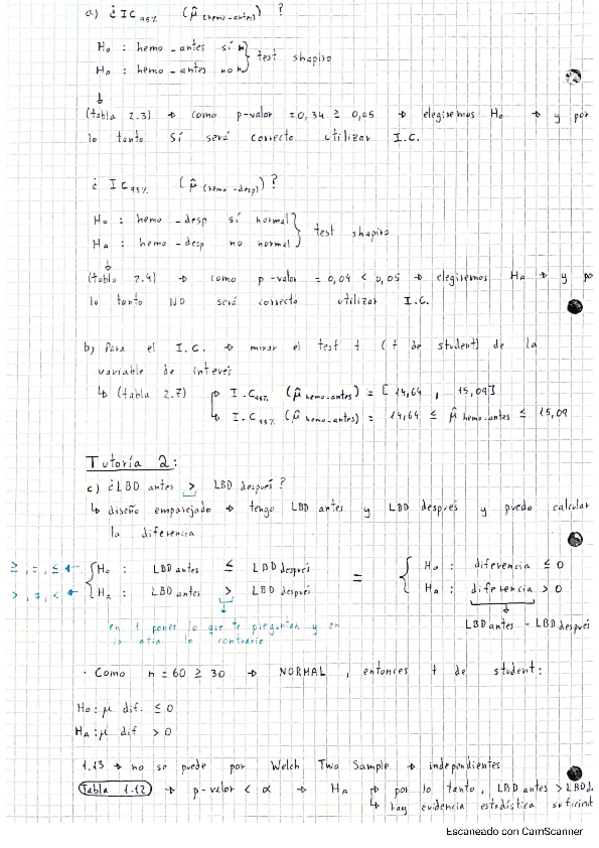 a) ¿ IC95% (μ̂(hemo-antes)) ?
H0 : hemo_antes sí n
HA : hemo_antes no n } test shapiro
(tabla 2.3) → como p-valor = 0,34 ≥ 0,05 → elegiremos H0 → y por
lo tanto SÍ será correcto utilizar I.C.
¿ IC95% (μ̂(hemo-desp)) ?
H0 : hemo_desp sí normal
HA : hemo_desp no normal } test shapiro
(tabla 2.4) → como p-valor = 0,04 < 0,05 → elegiremos HA → y po
lo tanto NO será correcto utilizar I.C.
b) Para el I.C. → mirar el test t (t de student) de la
variable de interés
↳ (tabla 2.7) → I.C95% (μ̂hemo-antes) = [14,64 , 15,09]
↳ I.C95% (μ̂hemo-antes) = 14,64 ≤ μ̂hemo-antes ≤ 15,09
Tutoría 2:
c) ¿LBD antes > LBD después?
↳ diseño emparejado → tengo LBD antes y LBD después y puedo calcular
la diferencia
≥, =, ≤ ← { H0 : LBD antes ≤ LBD después = { H0 : diferencia ≤ 0
>, ≠, < ← { HA : LBD antes > LBD después HA : diferencia > 0
LBD antes - LBD después
en 1 pones lo que te preguntan y en
la otra lo contrario
· Como n = 60 ≥ 30 → NORMAL, entonces t de student:
H0: μ dif. ≤ 0
HA: μ dif > 0
1.13 → no se puede por Welch Two Sample → independientes
Tabla 1.12 → p-valor < α → HA → por lo tanto, LBD antes > LBDd
↳ hay evidencia estadística suficient
Escaneado con CamScanner